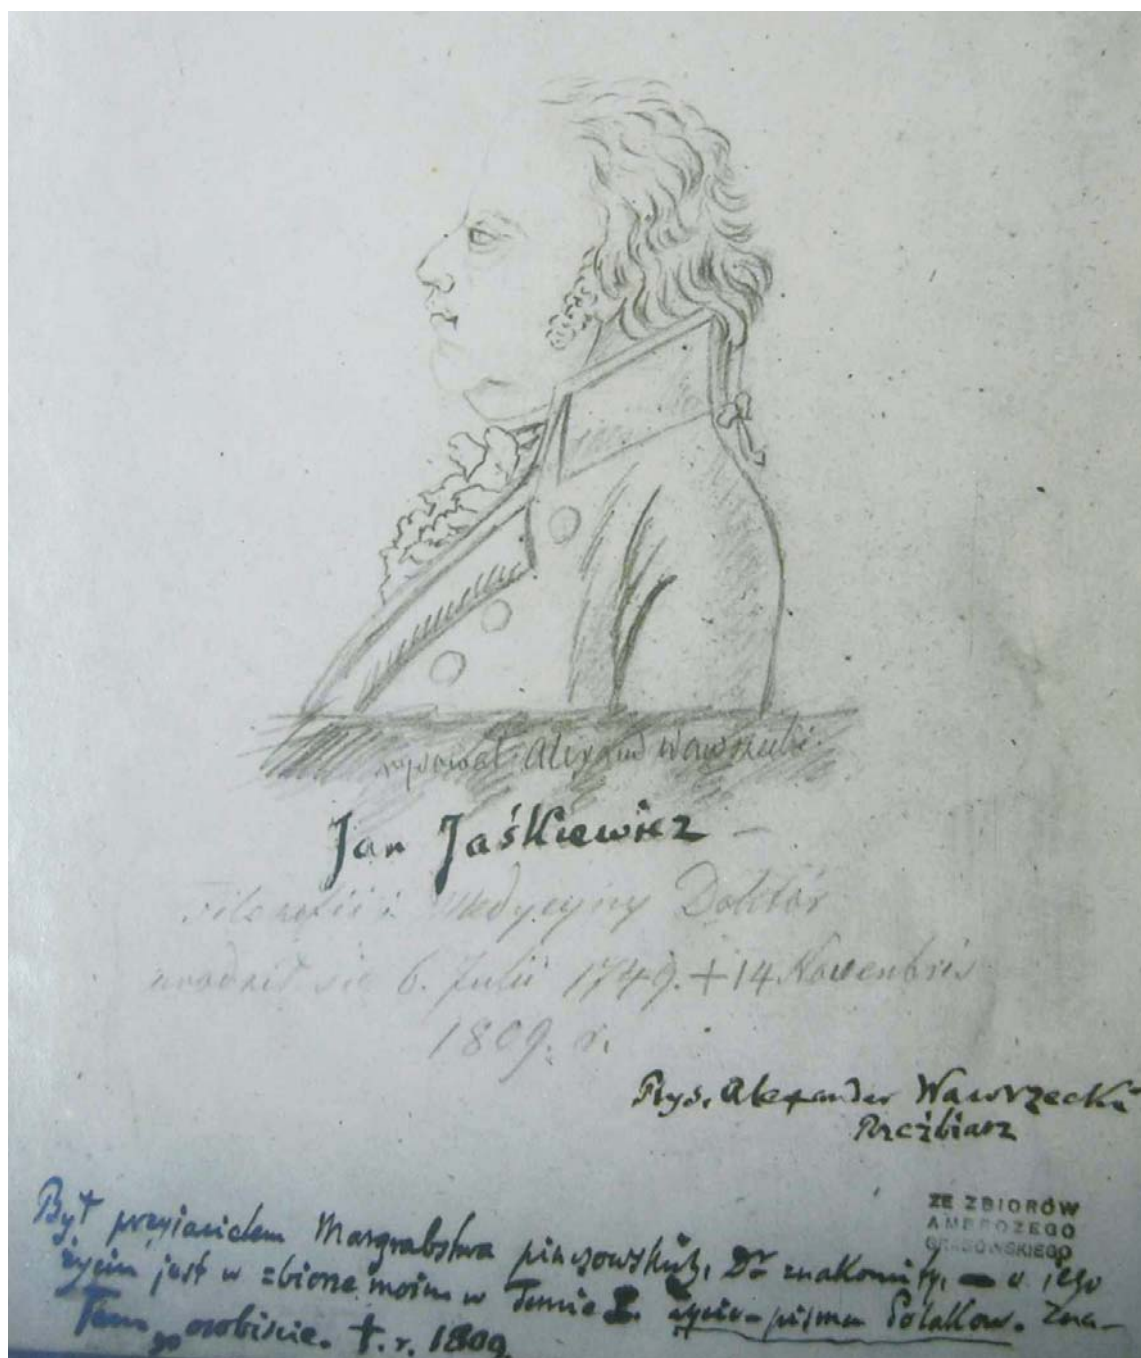 rysował Alexand Wawrzecki.
Jan Jaśkiewicz –
Filozofii i Medycyny Doktór
urodził się 6. Julii 1749. + 14 Novembris
1809. r.
Rys. Alexander Wawrzecki
Rzeźbiarz
ZE ZBIORÓW
AMBROŻEGO
GRABOWSKIEGO
Był przyiacielem Margrabstwa pinczowskich, Dr znakomity, – o jego
życiu jest w zbiorze moim w Tomie I. życio-pisma Polaków. Zna-
łem go osobiście. †. r. 1809.